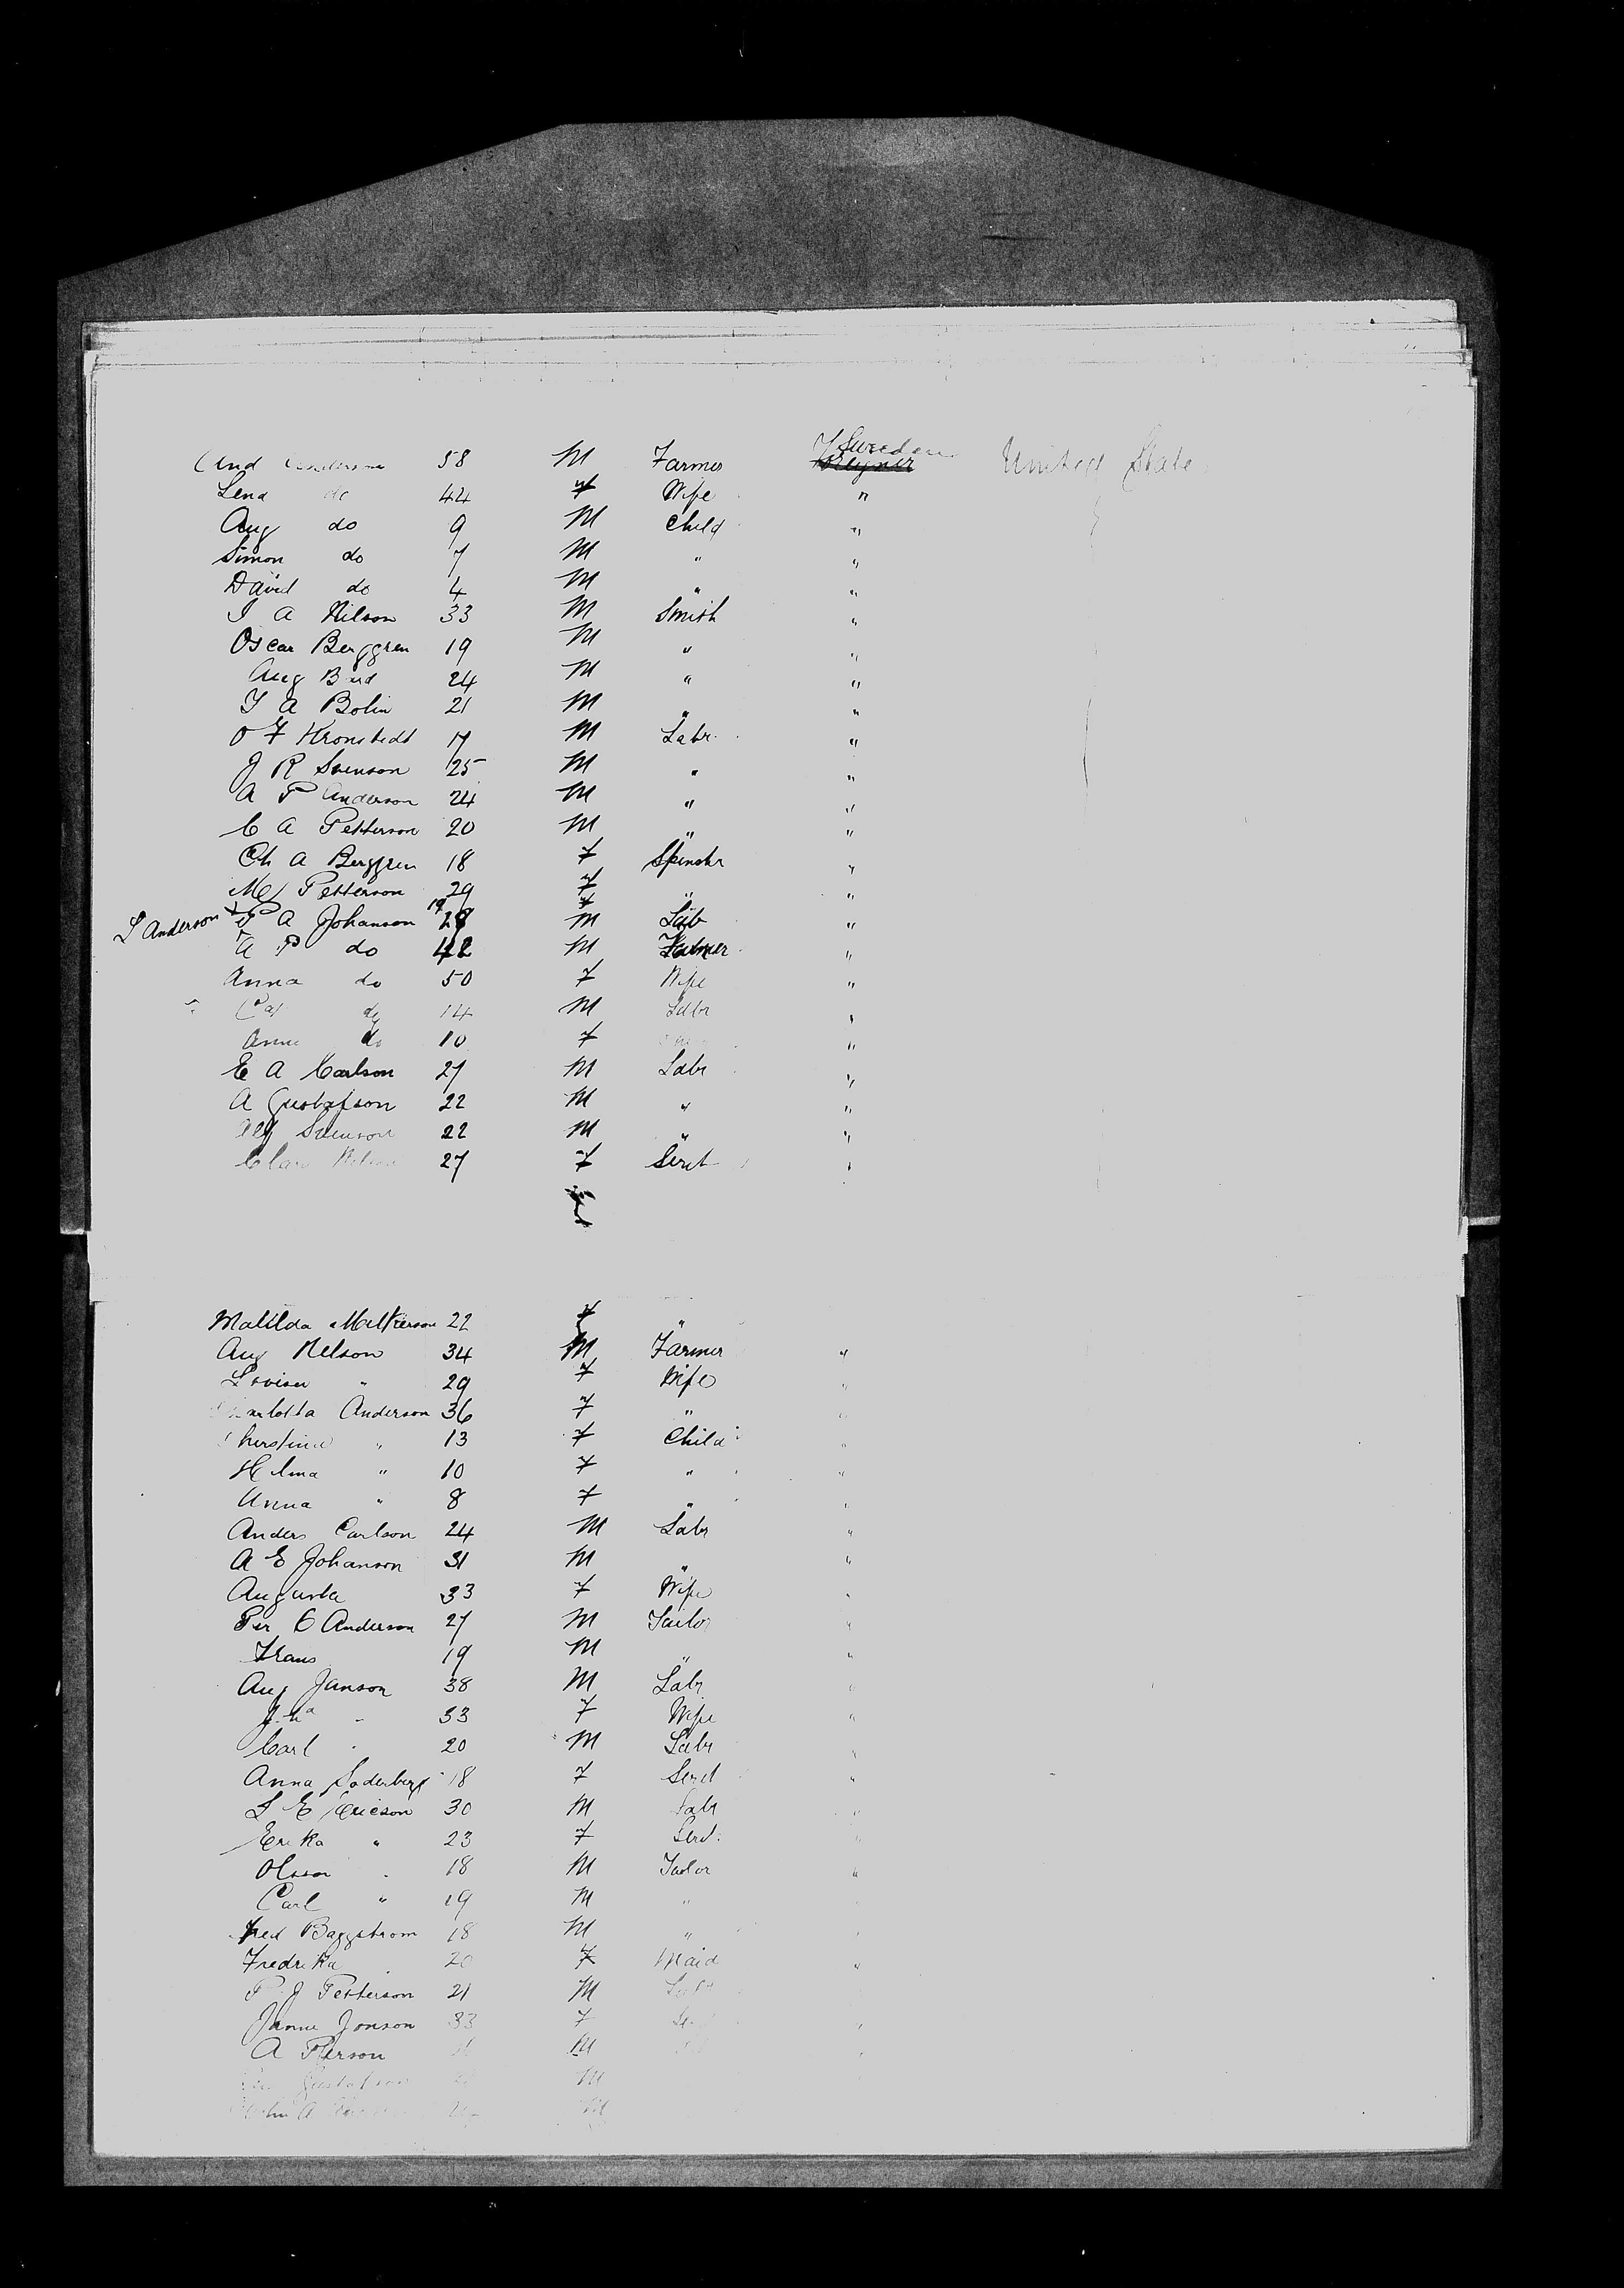 And Anderson 58 M Farmer Sweden United States
Lena do 44 F Wife "
Aug do 9 M Child "
Simon do 7 M " "
David do 4 M " "
J A Nilson 33 M Smith "
Oscar Berggren 19 M " "
Aug 24 M " "
J A Bolin 21 M " "
O F Kronstedt 17 M Labr. "
J R Svenson 25 M " "
A P Anderson 24 M " "
C A Petterson 20 M " "
Ch A Berggren 18 F Spinstr "
Petterson 29 F " "
L Anderson 19 F
P A Johanson 28 M Lab "
A P do 42 M Farmer "
Anna do 50 F Wife "
do 14 M Labr "
Anna do 10 F "
E A Carlson 27 M Labr "
A Gustafson 22 M " "
Alf Svenson 22 M " "
Clara Nelson 27 F Servt "
Matilda 22 F "
Aug Nelson 34 M Farmer "
Lovisa " 29 F Wife "
Anderson 36 F " "
" 13 F Child "
Helma " 10 F " "
Anna " 8 F " "
Anders Carlson 24 M Labr "
A E Johanson 31 M " "
Augusta 33 F Wife "
Per C Anderson 27 M Tailor "
Frans 19 M " "
Aug Janson 38 M Labr "
33 F Wife "
Carl " 20 M Labr "
Anna Soderberg 18 F Servt "
L E Ericson 30 M Labr "
Erika " 23 F Servt "
Olson " 18 M Tailor "
Carl " 19 M " "
Fred Baggstrom 18 M " "
Fredrika 20 F Maid "
P J Petterson 21 M Labr
Jonson 33 F "
A Pierson M "
Gustafson M
A M